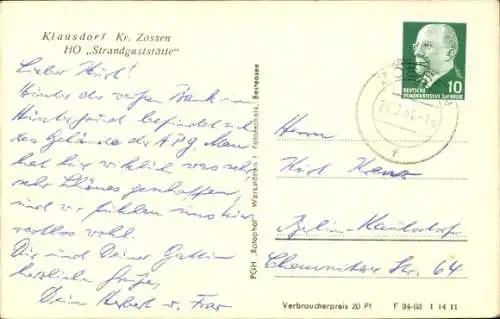 Klausdorf Kr. Zossen
HO „Strandgaststätte"
Lieber Kurt!
Hinter der weißen Bank im
Hintergrund befindet sich
das Gelände der APG. Man
hat hier wirklich was sehr,
sehr Schönes geschaffen,
und wir fühlen uns hier
restlos wohl.
Dir und Deiner Gattin
herzliche Grüße,
Dein Herbert u. Frau
PGH „Rotophot" Werkstätten f. Fototechnik, Bestensee
DEUTSCHE
DEMOKRATISCHE REPUBLIK
10
Herrn
Kurt
Berlin-Kaulsdorf
Chemnitzer Str. 64
Verbraucherpreis 20 Pf F 34-63 I 14 11